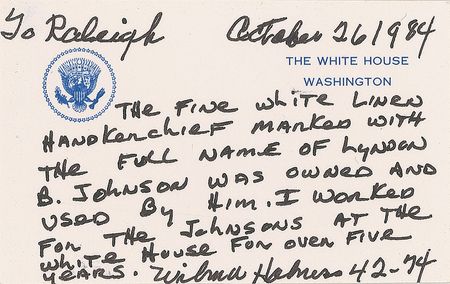 To Raleigh October 26 1984
THE WHITE HOUSE
WASHINGTON
THE FINE WHITE LINEN
HANDKERCHIEF MARKED WITH
THE FULL NAME OF LYNDON
B. JOHNSON WAS OWNED AND
USED BY HIM. I WORKED
FOR THE JOHNSONS AT THE
WHITE HOUSE FOR OVER FIVE
YEARS. Wilma Holness 42-74